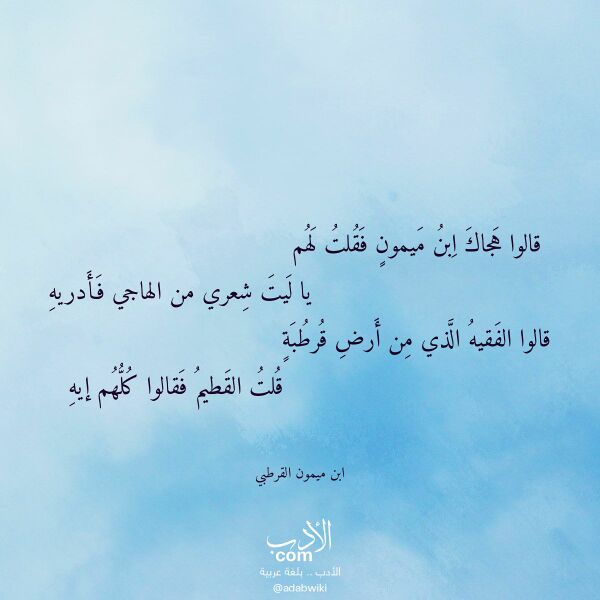 قالوا هَجاكَ اِبنُ مَيمونٍ فَقُلتُ لَهُم
يا لَيتَ شِعري من الهاجي فَأَدريهِ
قالوا الفَقيهُ الَّذي مِن أَرضِ قُرطُبَةٍ
قُلتُ القَطيمُ فَقالوا كُلُّهُم إيهِ
ابن ميمون القرطبي
الأدب
com
الأدب .. بلغة عربية
@adabwiki